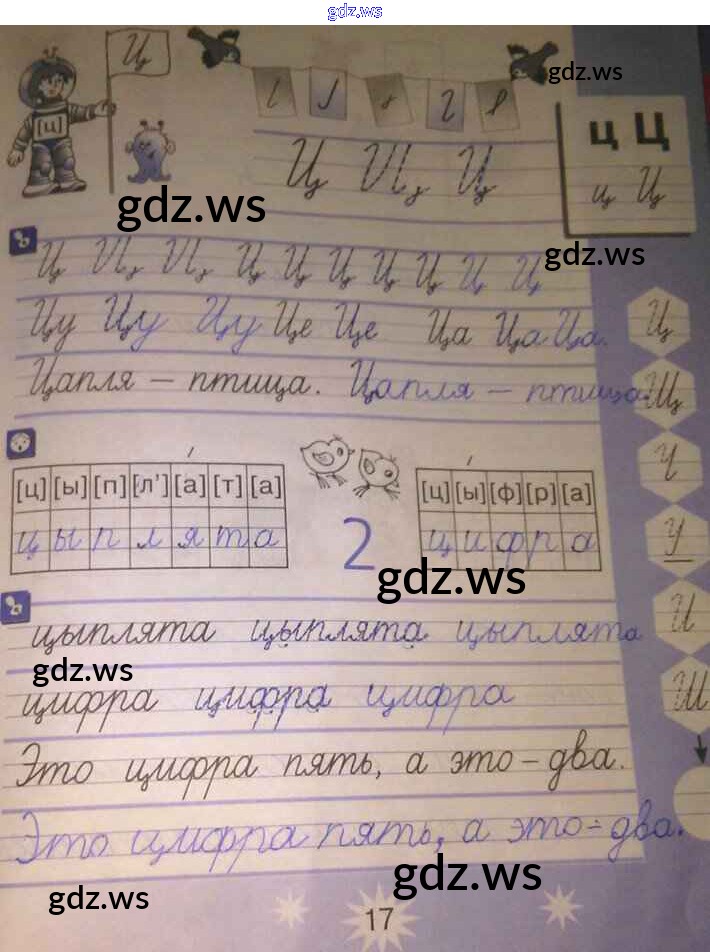 gdz.ws
Ц
gdz.ws
[ц]
ц Ц
Ц Ц
ц Ц
gdz.ws
gdz.ws
Ц Ц Ц Ц Ц Ц Ц
Цу Цу Цу Це Це Ца Ца Ца.
Ц
Цапля – птица. Цапля – птица.
Щ
[ц] [ы] [п] [л'] [а] [т] [а]
[ц] [ы] [ф] [р] [а]
Ч
ц ы п л я т а
2
ц и ф р а
У
gdz.ws
цыплята цыплята цыплята
И
gdz.ws
цифра цифра цифра
Ш
Это цифра пять, а это – два.
Это цифра пять, а это – два.
gdz.ws
gdz.ws
17